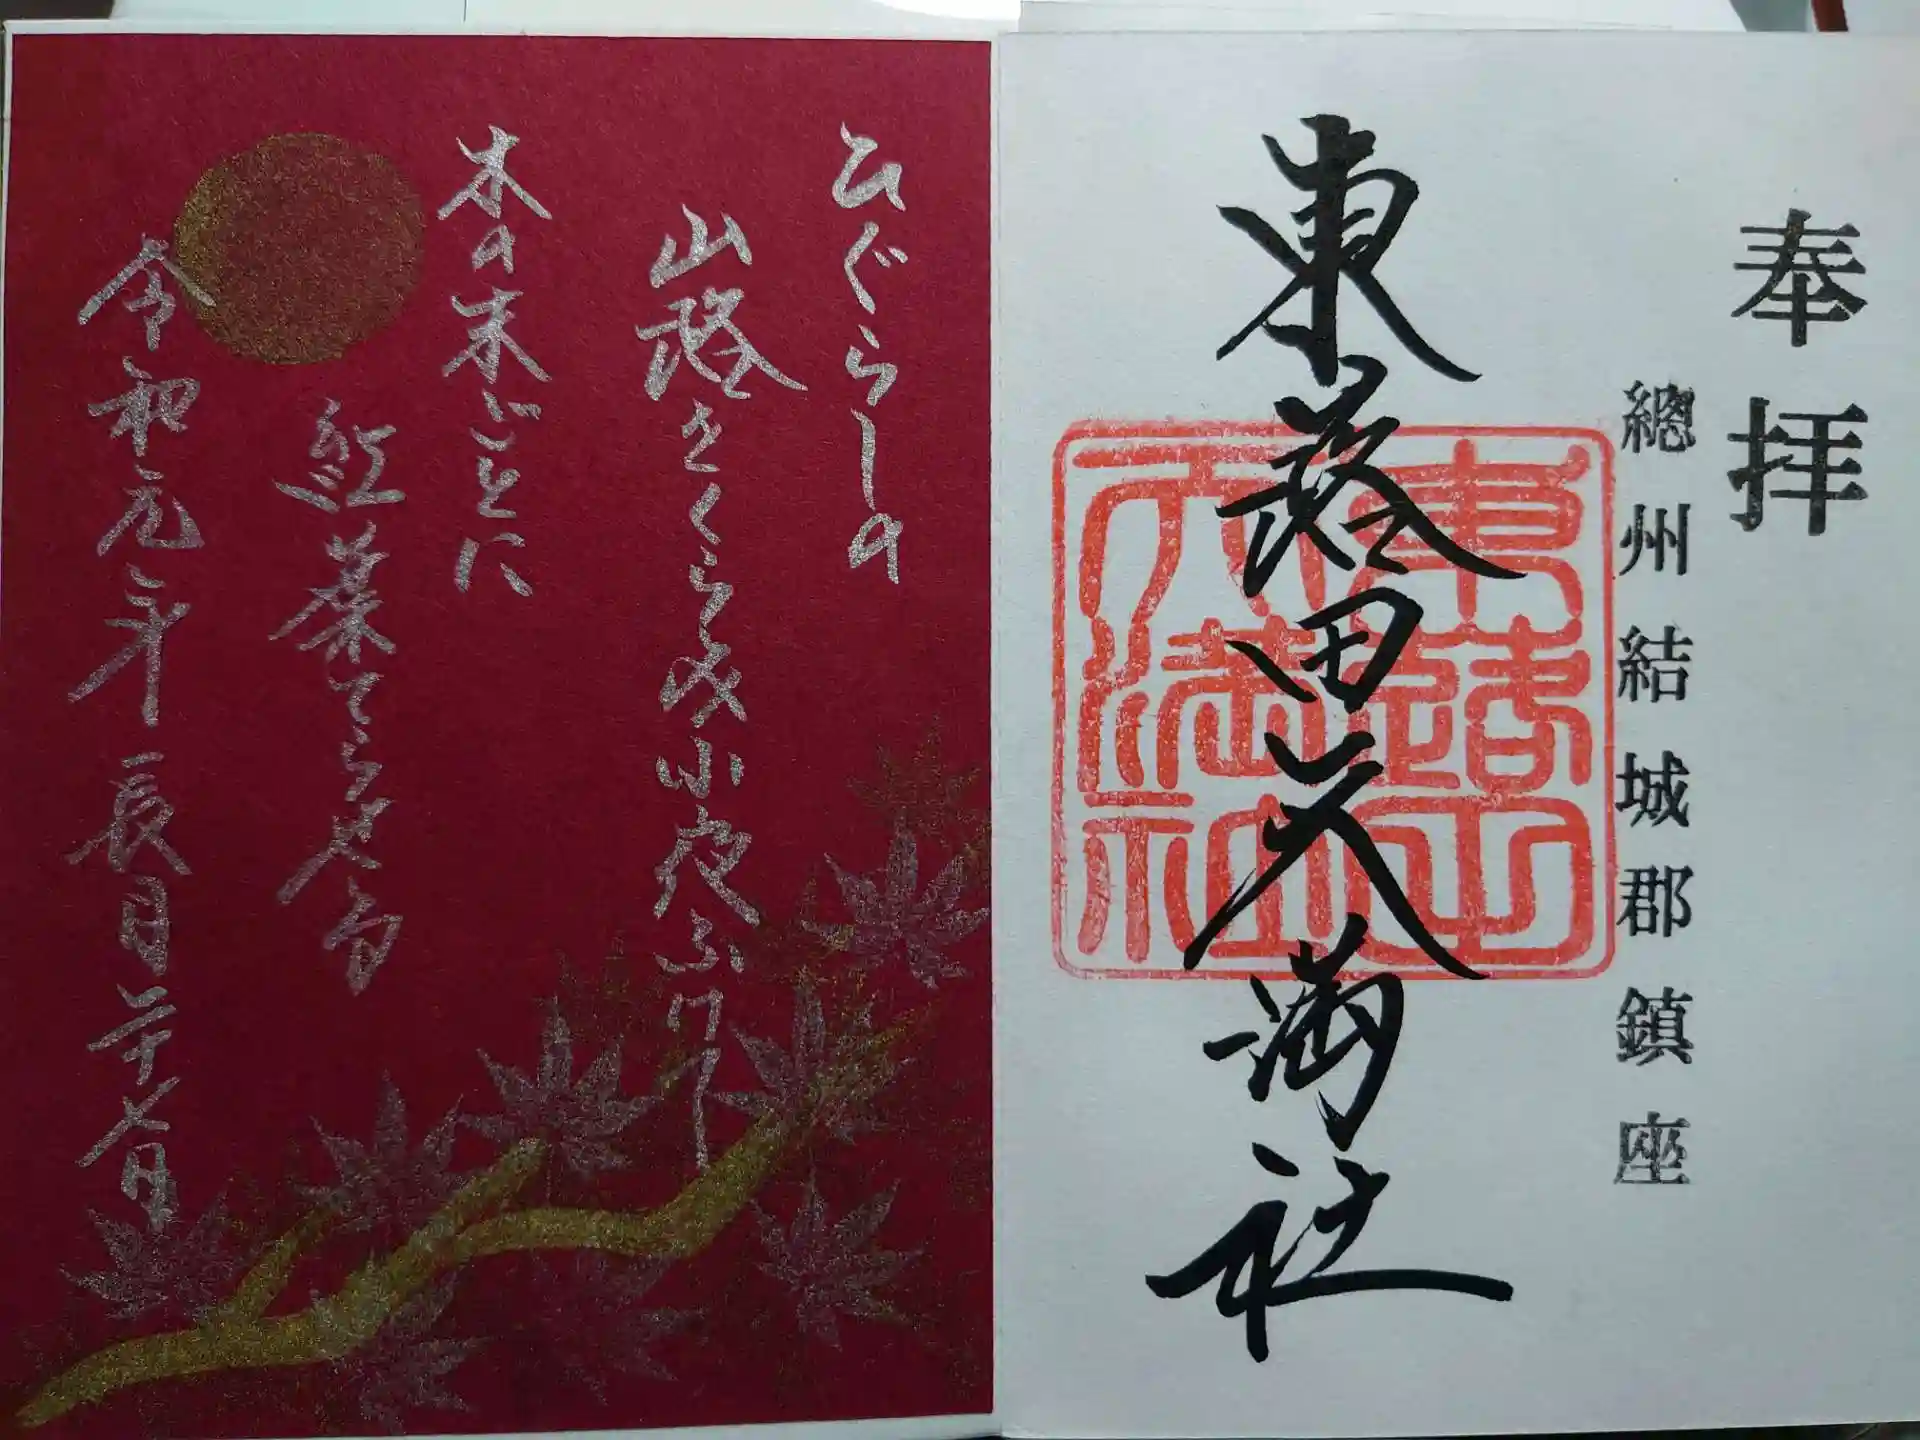 奉拝
總州結城郡鎮座
東蕗田天満社
ひぐらしの
山路をくらみ小夜ふけて
木の末ごとに
紅葉てらせる
令和元年長月廿六日